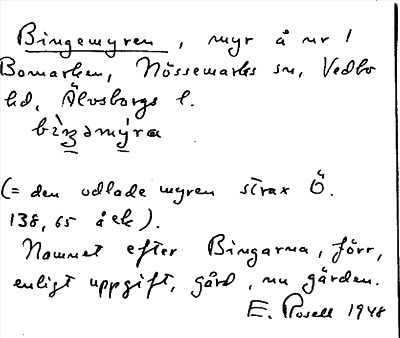 Bingemyren, myr å nr 1
Bomarken, Nössemarks sn, Vedbo
hd, Älvsborgs l.
bìŋəmýra
(= den odlade myren strax Ö.
138,65 å ek).
Namnet efter Bingarna, förr,
enligt uppgift, gård, nu gärden.
E. Rosell 1948